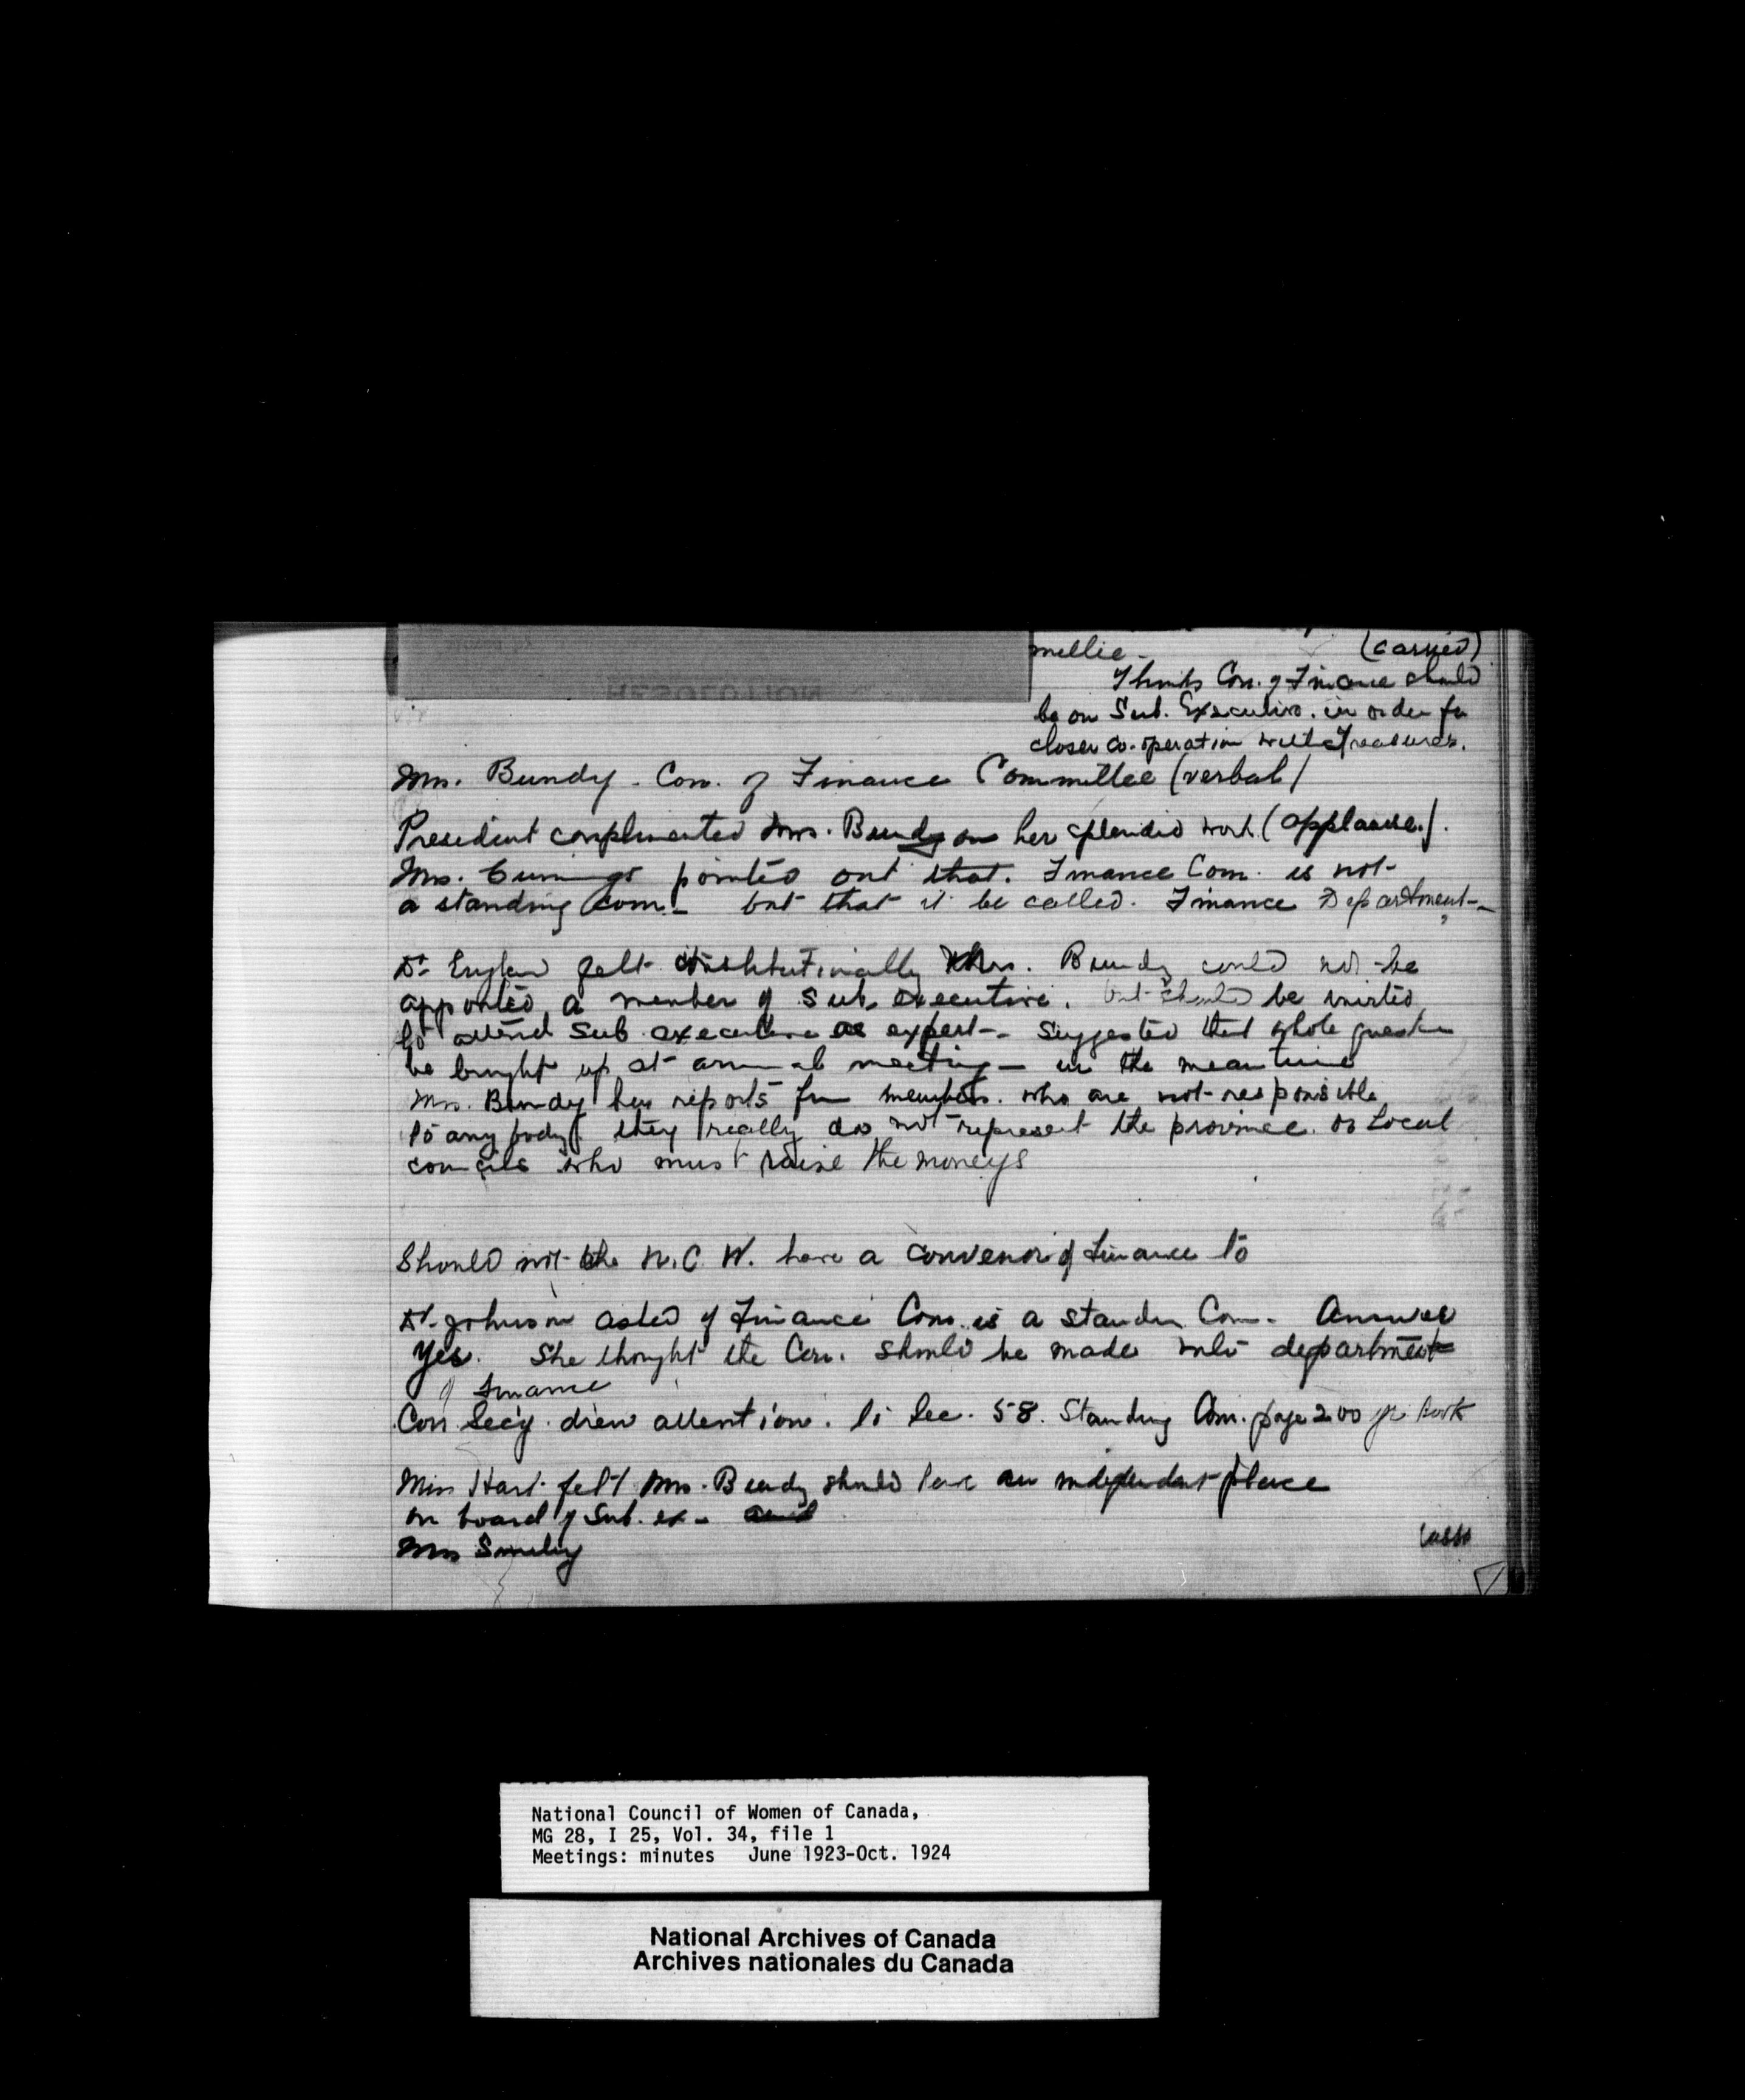 mellie - (carried)
Thinks Con. of Finance should
be on Sub. Executive. in order for
closer co-operation with Treasurer.
Mrs. Bundy - Con. of Finance Committee (verbal)
President complimented Mrs. Bundy on her splendid work (applause).
Mrs. Cummings pointed out that. Finance Com. is not
a standing Com - but that it be called. Finance Department -
Dr England felt constitutionally Mrs. Bundy could not be
appointed a member of Sub. executive. but should be invited
to attend Sub executive as expert - suggested that whole question
be brought up at annual meeting - in the meantime
Mrs. Bundy her reports from members. who are not responsible
to any body. they really do not represent the province. or Local
councils who must raise the moneys
Should not the N.C.W. have a convenor of Finance to
Dr. Johnson asked if Finance Com. is a standin Com - Answer
Yes. She thought the Con. should be made into department
of Finance
Corr Sec'y. drew attention. to Sec. 58. Standing Com. page 200 yr book
Miss Hart felt Mrs. Bundy should have an independent place
on board of Sub. ex -
Mrs Smiley
RESOLUTION
National Council of Women of Canada,
MG 28, I 25, Vol. 34, file 1
Meetings: minutes June 1923-Oct. 1924
National Archives of Canada
Archives nationales du Canada